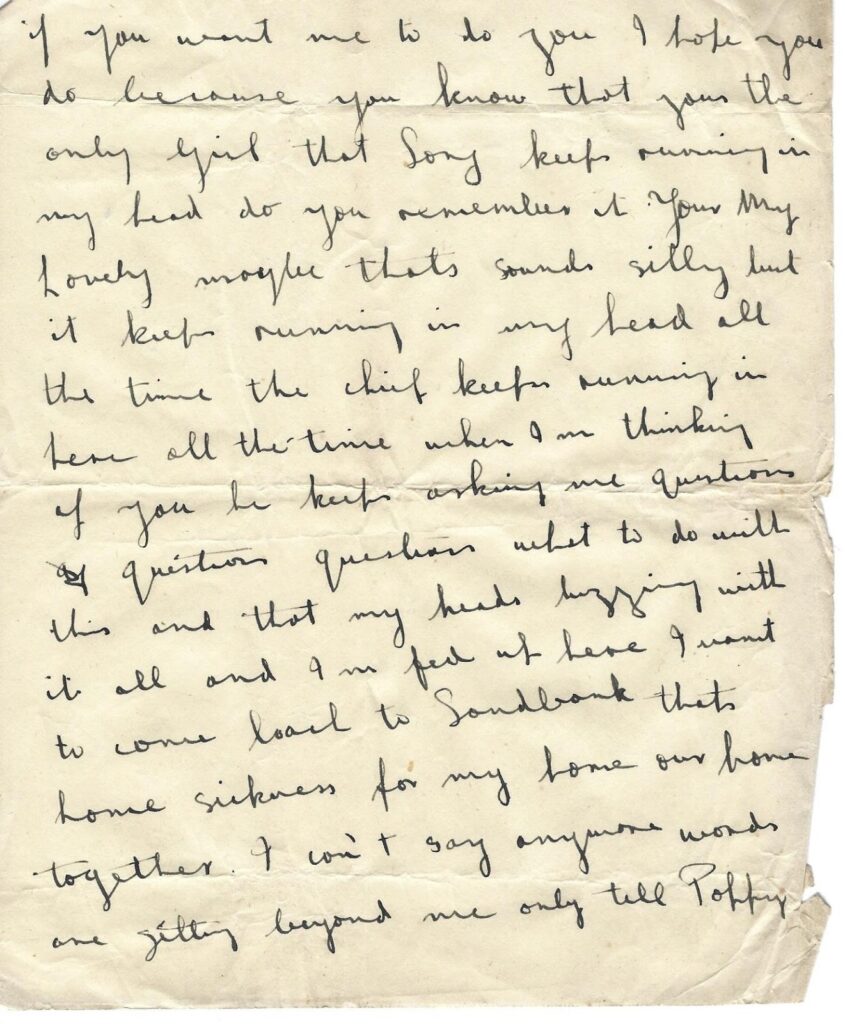 if you want me to do you I hope you
do because you know that yous the
only Girl that Song keeps running in
my head do you remember it Your My
Lovely maybe thats sounds silly but
it keeps running in my head all
the time the chief keeps running in
here all the time when I'm thinking
of you he keeps asking me questions
questions questions what to do with
this and that my heads buzzing with
it all and I'm fed up here I want
to come back to Sandbank thats
home sickness for my home our home
together. I can't say anymore words
are getting beyond me only tell Poppy